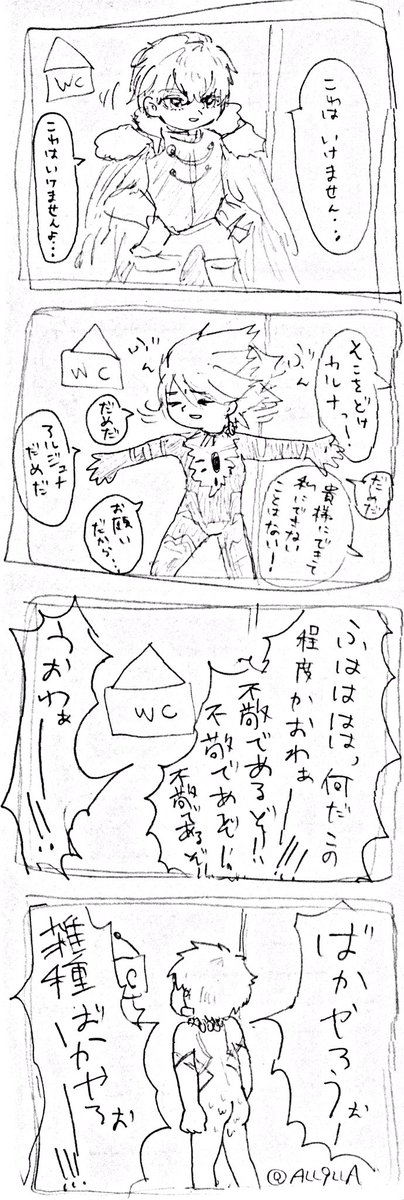 WC
これは いけません…
これはいけませんよ…
WC
そこをどけ
カルナっー!
ぶん
ぶん
だめだ
だめだ
貴様にできて
私にできない
ことはないー!
アルジュナ
だめだ
お願い
だから…
ふはははは、何だこの
程度かおわぁー!!!
不敬であるぞー!!
不敬であぞー!!
不敬であるぞー
WC
うおわぁー!!!
ばかやろうぉー
雑種ばかやろぉー!!!
@ALL9LLA